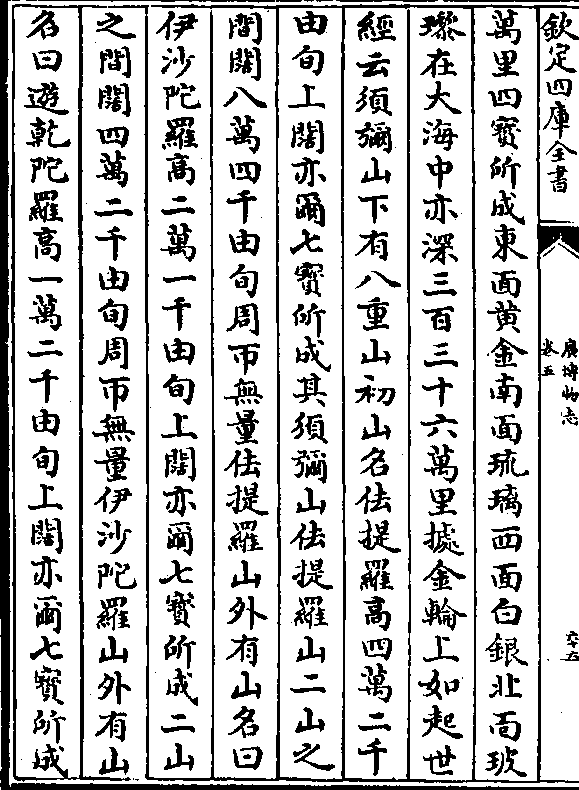 欽定四庫全書
廣博物志
卷五
六十五
萬里四寳所成東面黄金南面琉璃西面白銀北面玻
瓈在大海中亦深三百三十六萬里據金輪上如起世
經云須彌山下有八重山初山名佉提羅高四萬二千
由旬上闊亦爾七寳所成其須彌山佉提羅山二山之
間闊八萬四千由旬周帀無量佉提羅山外有山名曰
伊沙陀羅高二萬一千由旬上闊亦爾七寳所成二山
之間闊四萬二千由旬周帀無量伊沙陀羅山外有山
名曰遊乾陀羅高一萬二千由旬上闊亦爾七寳所成